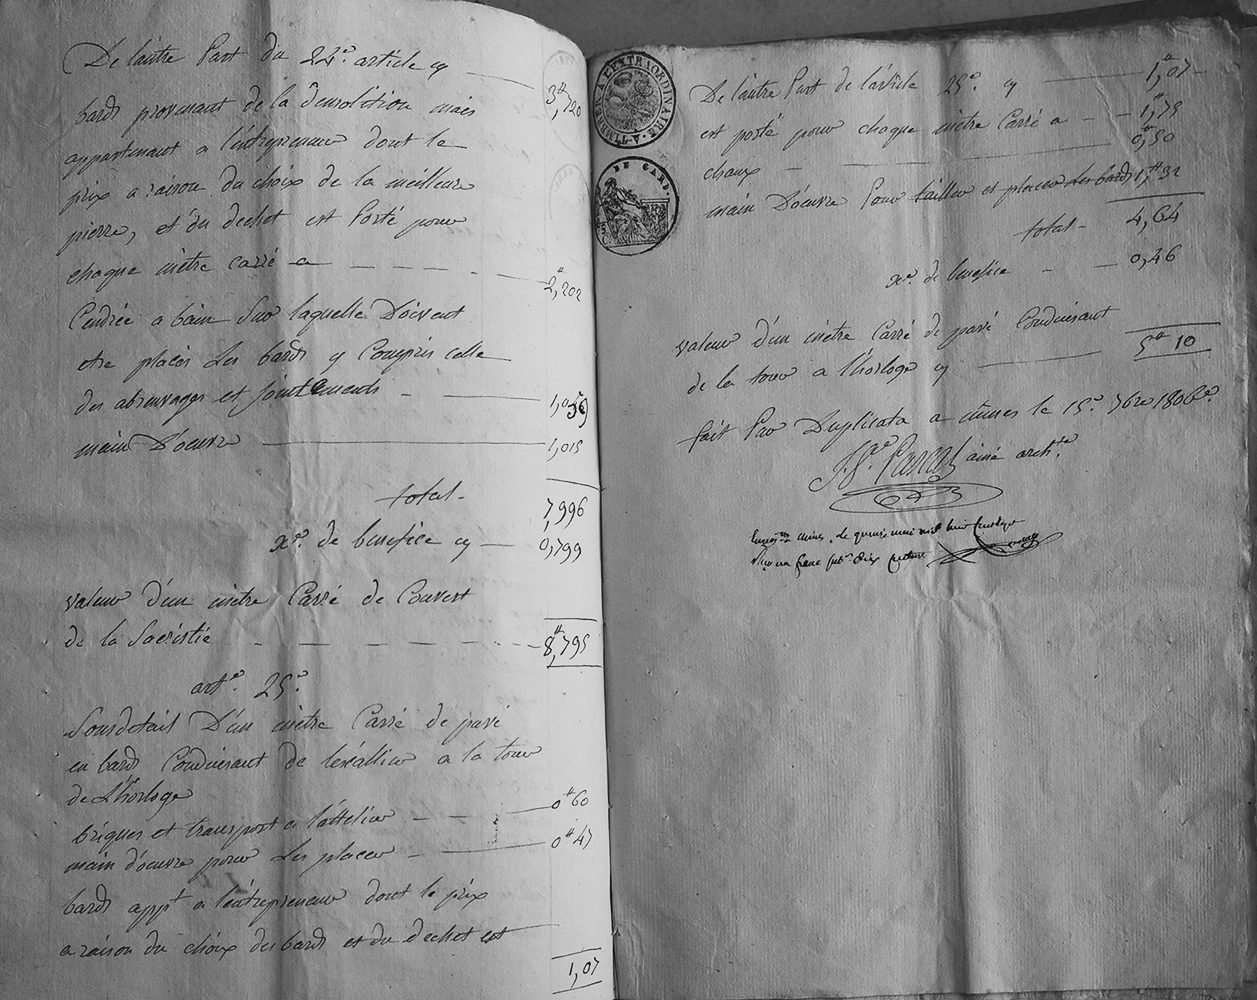 De l'autre Part du 24e. article cy 3#,720
bards provenant de la demolition mais
appartenant a l'entrepreneur dont le
prix a raison du choix de la meilleure
pierre, et du dechet est Porté pour
chaque mètre carré a 2#,202
Cendrée a bain sur laquelle Doivent
etre placés Les bards y Compris celle
des abreuvages et jointements 1,059
main D'oeuvre 1,015
total - 7,996
xe. de benefice cy 0,799
valeur d'un mètre Carré de Couvert
de la Sacristie 8#,795
arte. 25e.
Sousdetail D'un mètre Carré de pavé
en bards Conduisant de l'escallier a la tour
de L'horloge
briques et transport a l'attelier 0#60
main d'oeuvre pour Les placer 0#47
bards appt a l'entrepreneur dont le prix
a raison du choix des bards et du dechet est
1,07
TIMBRE A L'EXTRAORDINAIRE
DU GARD
De l'autre Part de l'article 25e. cy 1#,07
est porté pour chaque mètre Carré a 1#,75
chaux 0#,50
main D'oeuvre Pour tailler et placer Les bards 1#,32
total - 4,64
xe. de benefice 0,46
valeur d'un mètre Carré de pavé Conduisant
de la tour a l'horloge cy 5# 10
fait Par Duplicata a nimes le 15e. 7bre 1806
Pascal ainé archte
nimes, le quinze mai mil huit
un franc